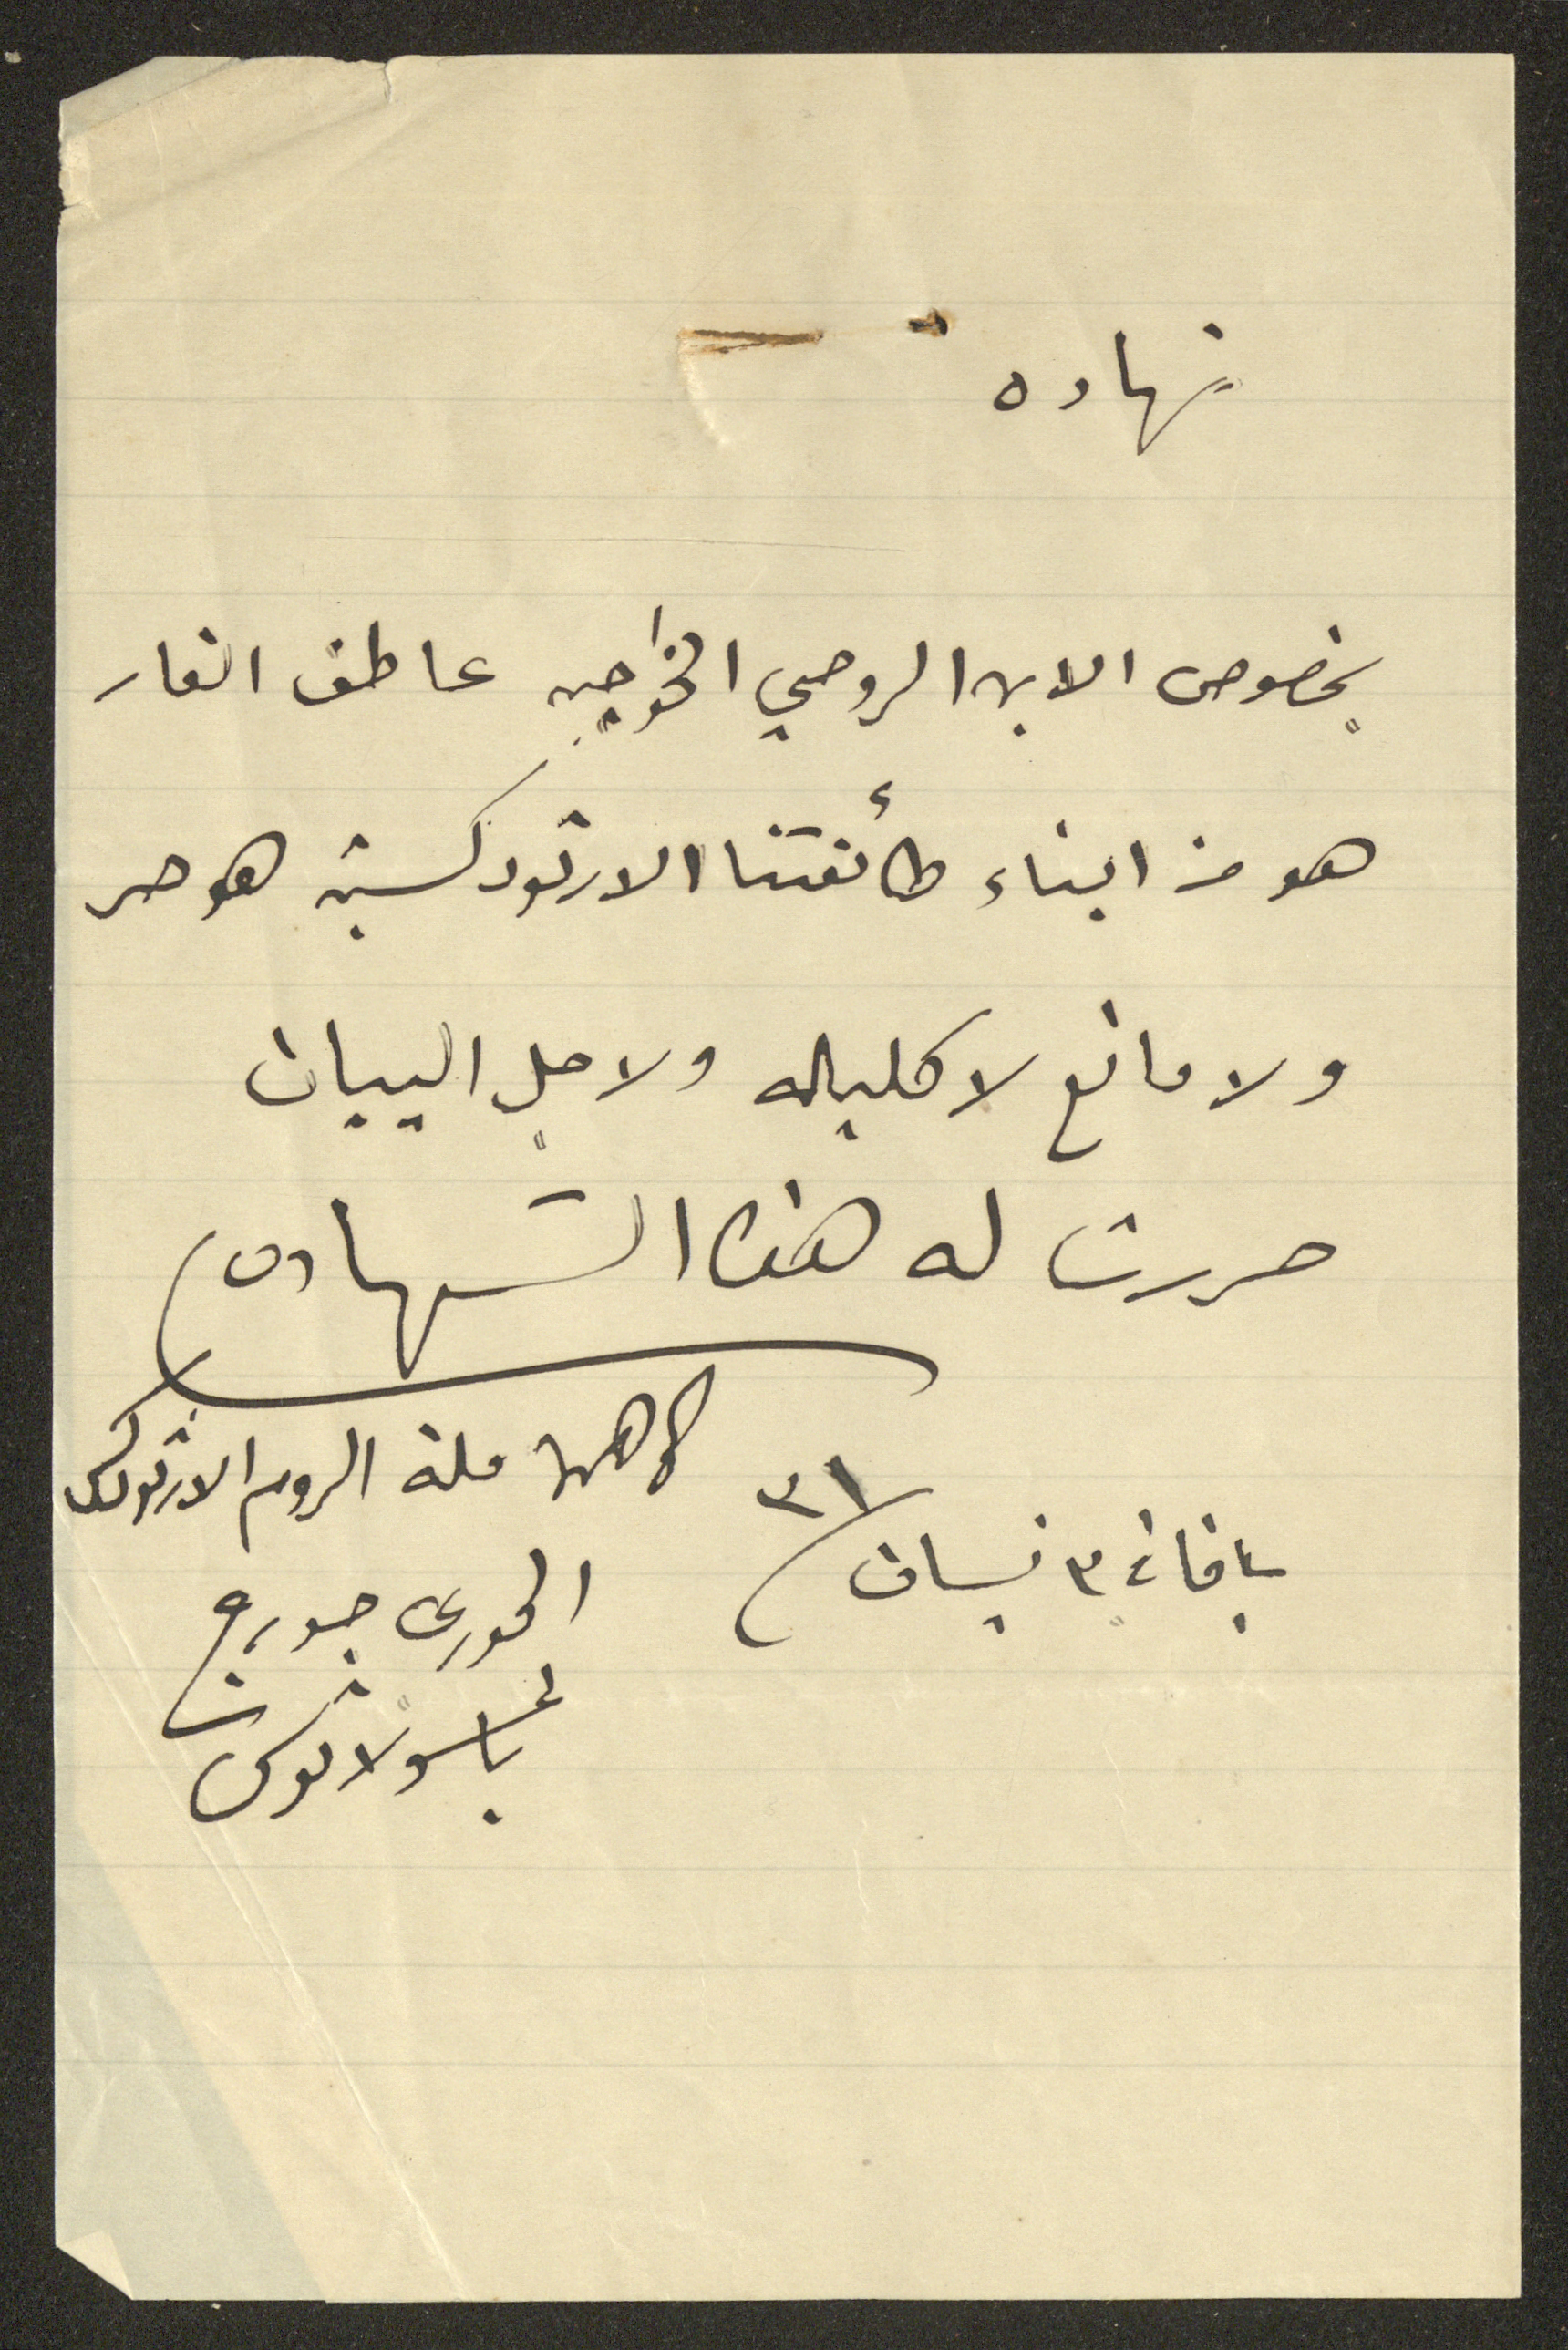 شهاده
بخصوص الابن الروحي الخواجه عاطف الفار
هو من ابناء طائفتنا الارثوذكسية هو حر
ولا مانع لاكليله ولاجل البيان
حررت له هذه الشهاده
ملة الروم الارثوذكس
يافا في ٣ نيسان ٣١
الخوري جورج